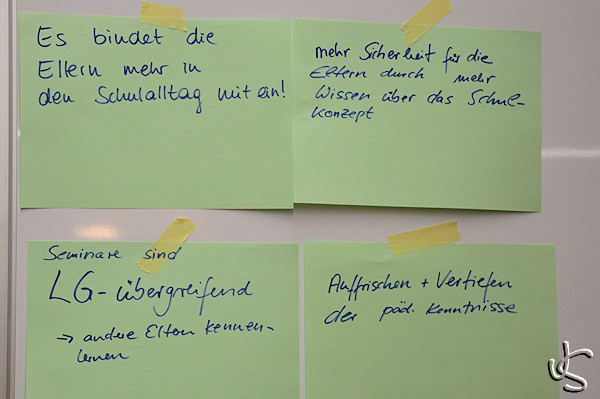 Es bindet die
Eltern mehr in
den Schulalltag mit ein!
mehr Sicherheit für die
Eltern durch mehr
Wissen über das Schul-
konzept
Seminare sind
LG-übergreifend
→ andere Eltern kennen-
lernen
Auffrischen + Vertiefen
der päd. Kenntnisse